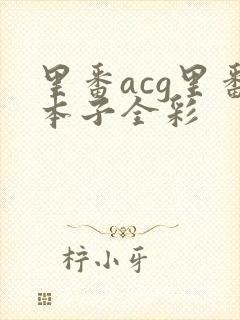 里番acg里番
本子全彩
柠小牙